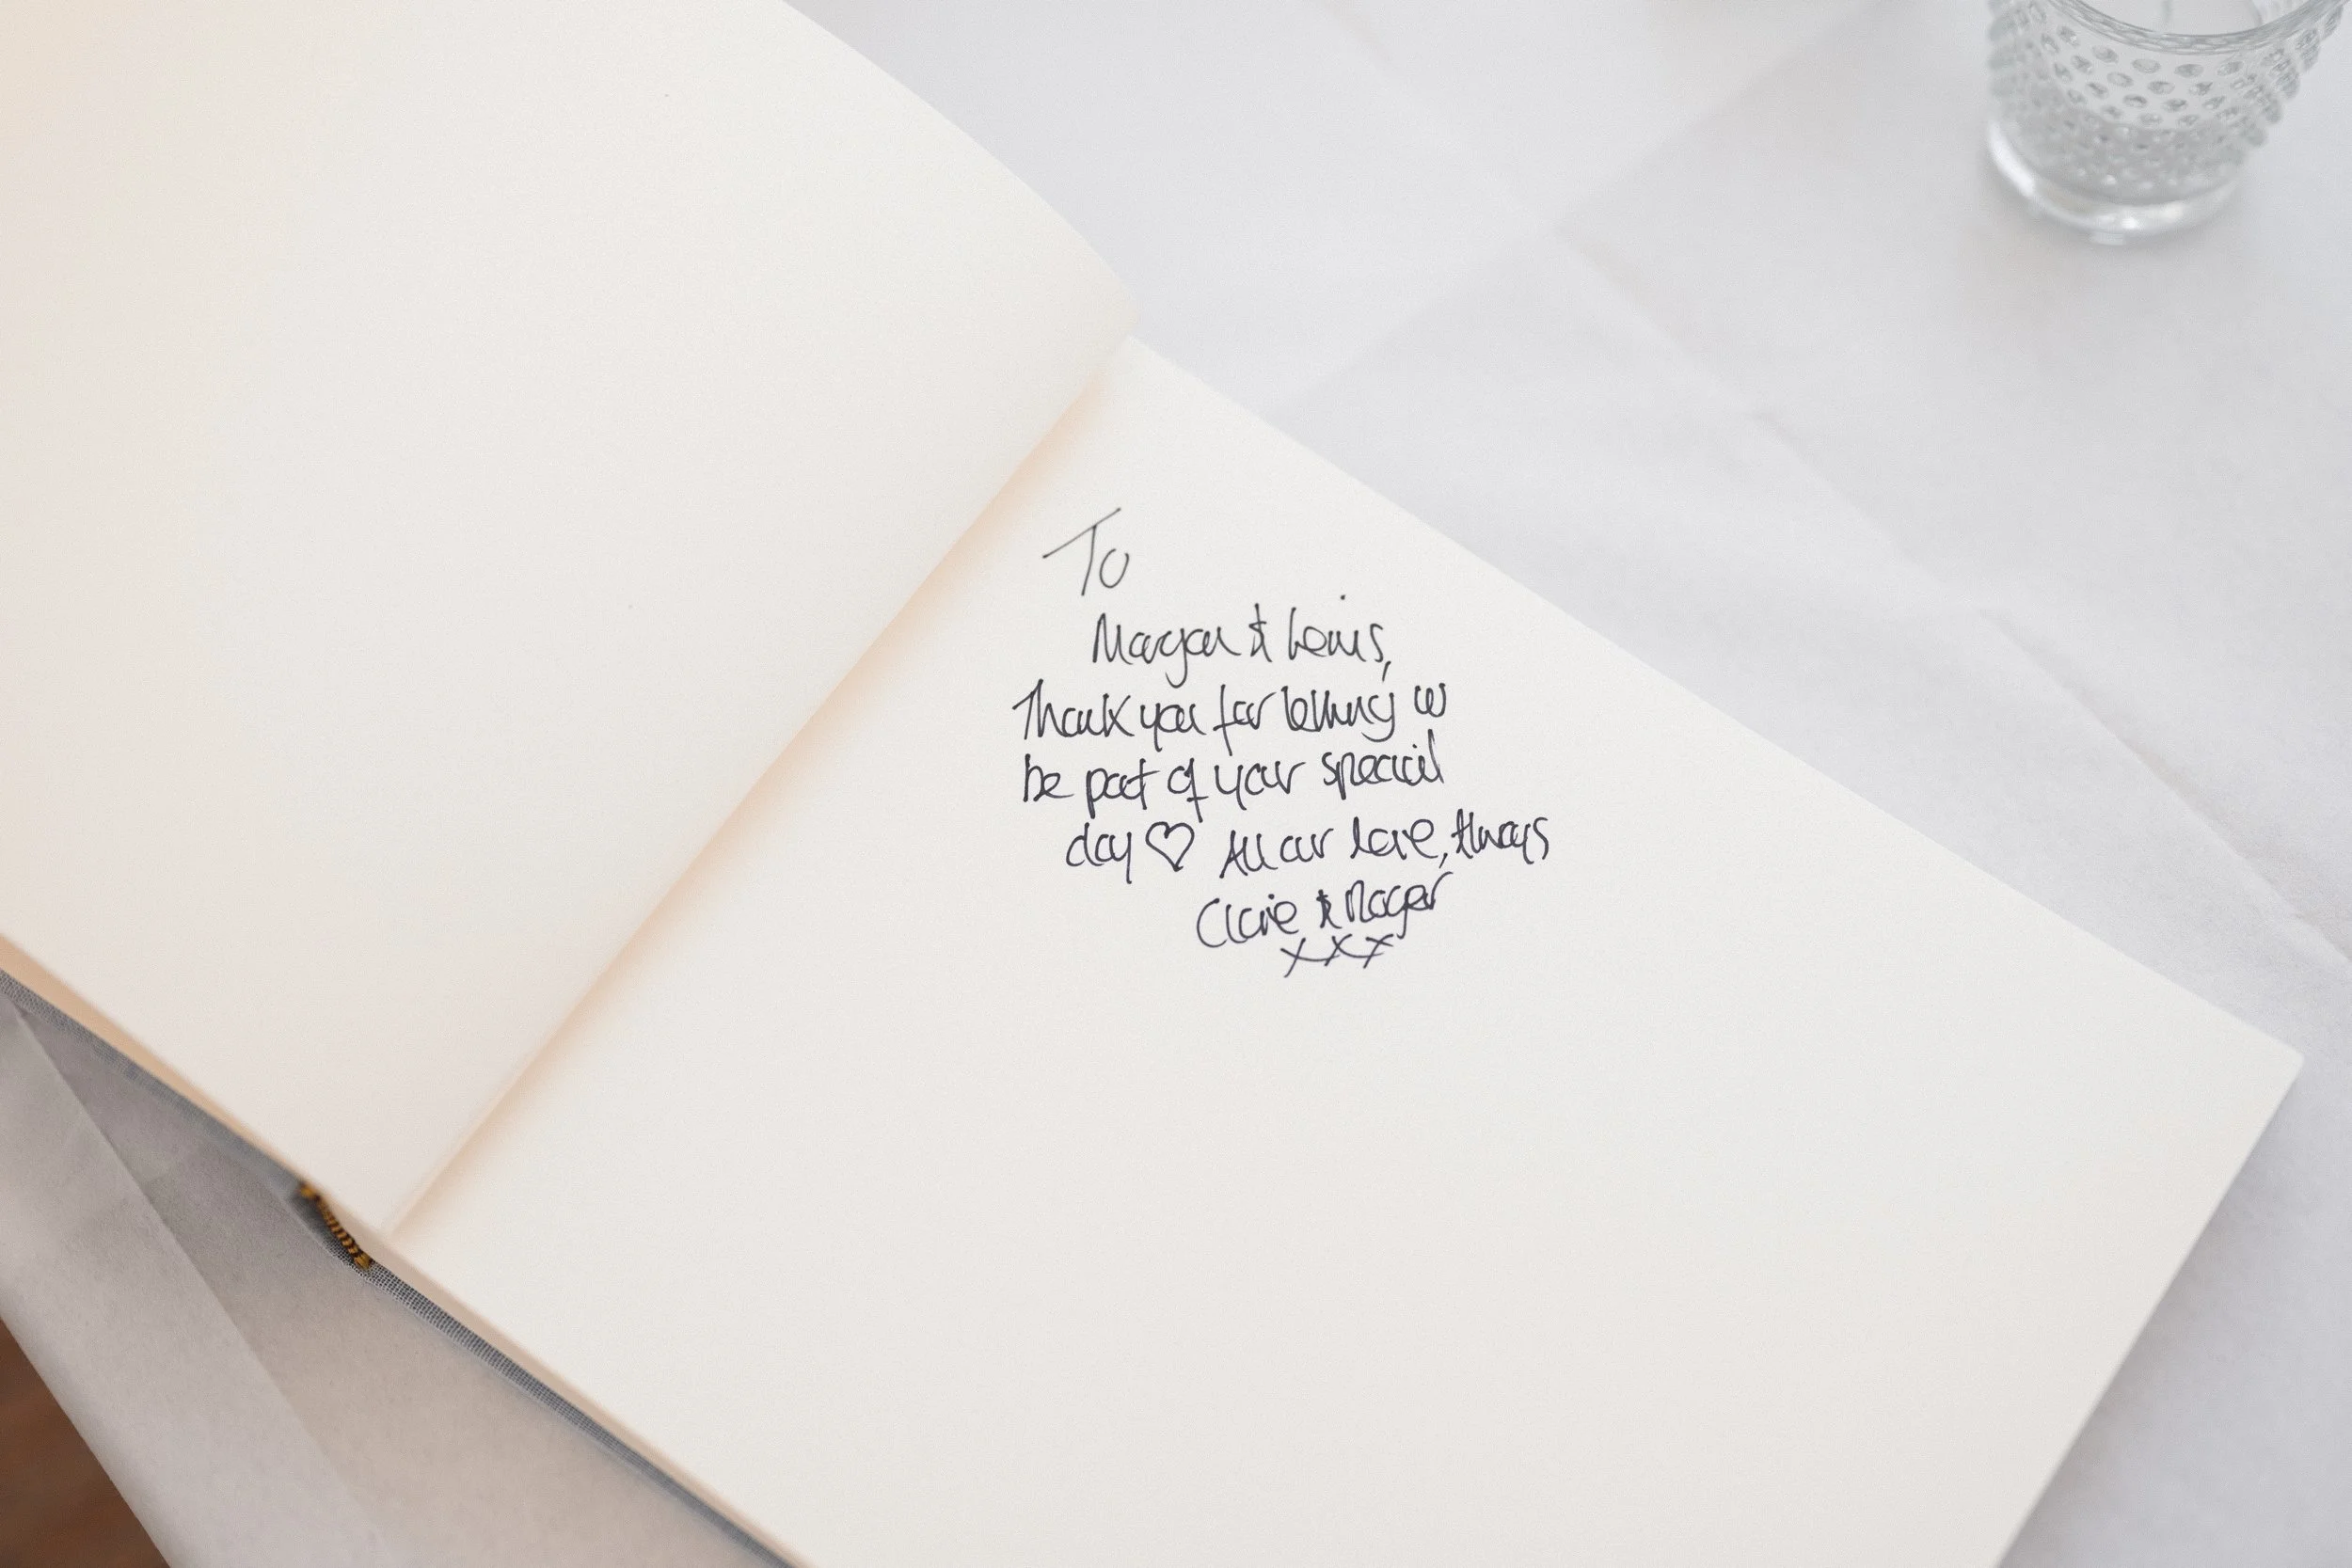 To
Morgan & Lewis,
Thank you for letting us
be part of your special
day ♡ All our love, Always
Claire & Roger
xxx